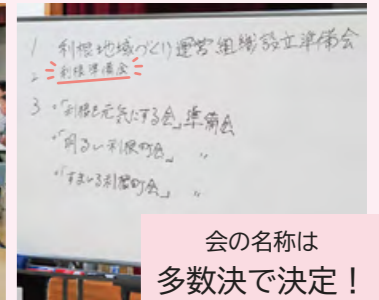 1 利根地域づくり運営組織設立準備会
2 利根準備会
3 ・「利根を元気にする会」準備会
・「明るい利根町会」 〃
・「すまいる利根町会」 〃
会の名称は
多数決で決定！